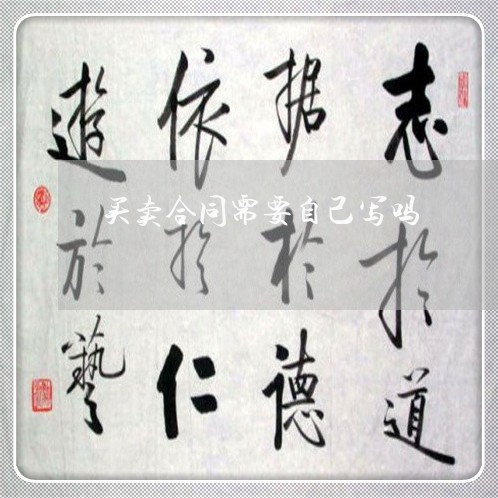 志於道
据於德
依於仁
遊於藝
买卖合同需要自己写吗